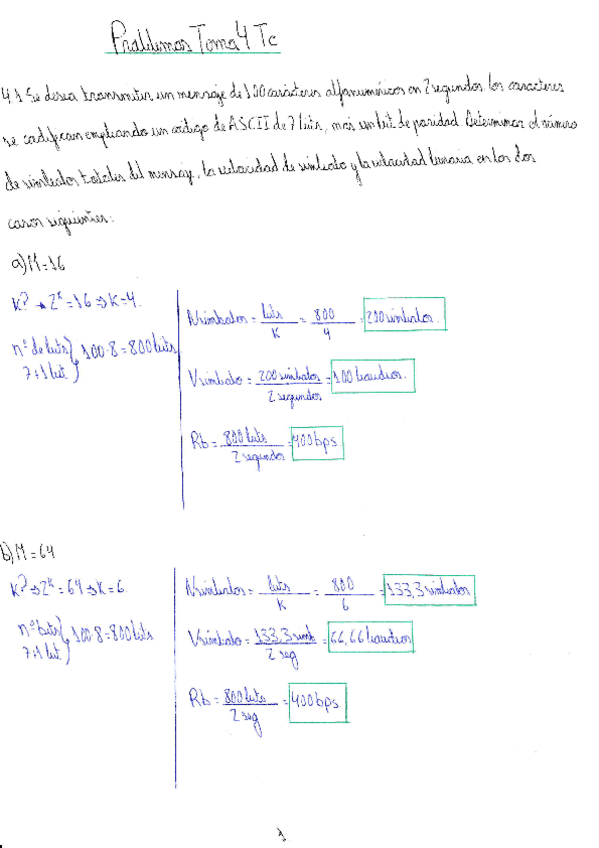 Problemas Tema 4 Tc
4.1 Se desea transmitir un mensaje de 100 carácteres alfanuméricos en 2 segundos. los caracteres
se codifican empleando un código de ASCII de 7 bits, más un bit de paridad. Determinar el número
de símbolos totales del mensaje, la velocidad de símbolo y la velocidad binaria en los dos
casos siguientes:
a) M=16
K? → 2^K = 16 ⇒ K=4.
nº de bits } 100·8 = 800 bits
7+1 bit
Nsímbolos = bits / K = 800 / 4 = 200 símbolos.
Vsímbolo = 200 símbolos / 2 segundos = 100 baudios.
Rb = 800 bits / 2 segundos = 400 bps
b) M=64
K? ⇒ 2^K = 64 ⇒ K=6.
nº bits } 100·8 = 800 bits
7+1 bit
Nsímbolos = bits / K = 800 / 6 = 133,3 símbolos
Vsímbolo = 133,3 símb / 2 seg = 66,66 baudios
Rb = 800 bits / 2 seg = 400 bps
1